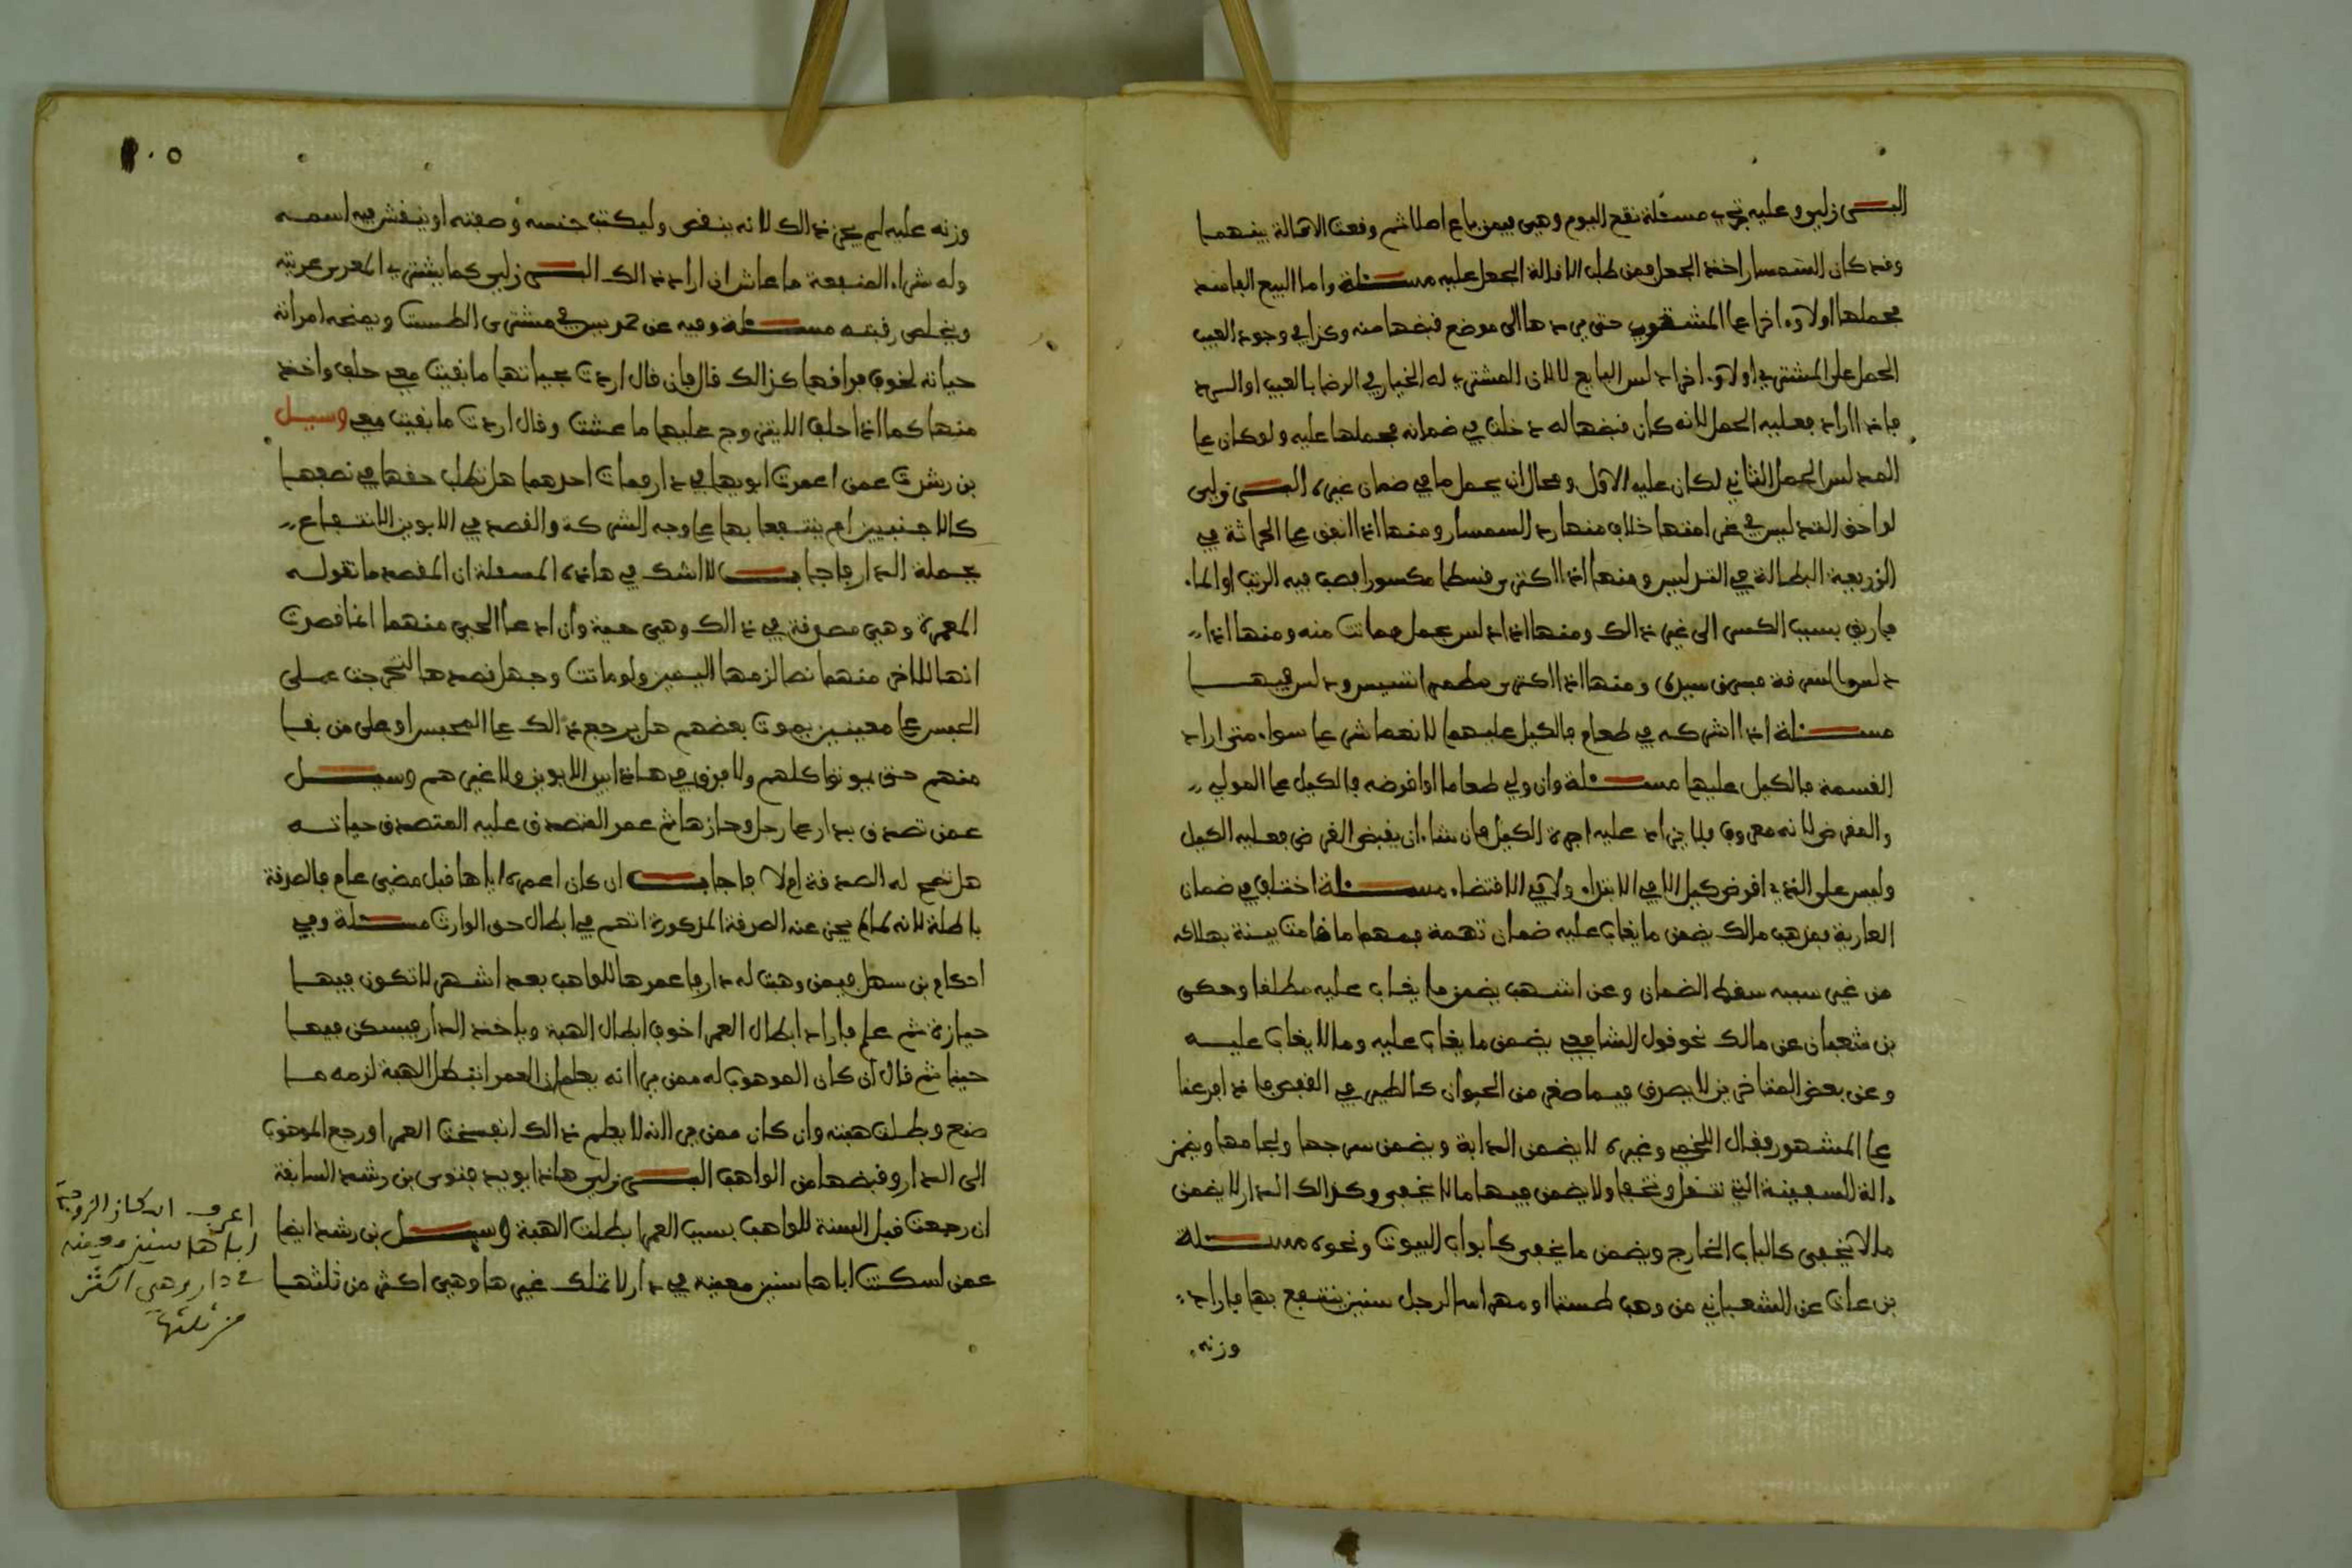 البرزلي وعليه تجري مسئلة تقع اليوم وهي فيمن باع اصلا ثم وقعت الاقالة بينهما
وقد كان السمسار اخذ الجعل فمن طلب الاقالة الجعل عليه مسئلة واما البيع الفاسد
فحملها اولا واخرا على المشتري حتى يردها الى موضع قبضها منه وكذا في وجود العيب
الحمل على المشتري اولا واخرا دلس البايع لا لان المشتري له الخيار في الرضا بالعيب او الرد
فاذا اراد فعليه الحمل لانه كان قبضها له دخلت في ضمانه فحملها عليه ولو كان على
المدلس الحمل الثاني لكان عليه الاول ومحال ان يحمل ما في ضمان غيره البرزلي
لواحق التدليس في غرامتها خلاف منها رد السمسار ومنها اذا انفق على الحراثة في
الزريعة البطالة في التدليس ومنها اذا اكترى قسطا مكسورا فصب فيه الزيت او الماء
فاريق بسبب الكسر الى غير ذالك ومنها اذا دلس بحمل فماتت منه ومنها اذا
دلس بالسرقة فسرق سيده ومنها اذا اكترى مطمرا تسيس ودلس فيها
مسئلة اذا اشركه في طعام فالكيل عليهما لانهما شرعا سواء متى اراد
القسمة فالكيل عليها مسئلة وان ولي طعاما او اقرضه فالكيل على المولي
والمقرض لانه معروف فلا يزاد عليه اجرة الكيل فان شاء ان يقبض القرض فعليه الكيل
وليس على الذي اقرض كيل لا في الابتداء ولا في الاقتضاء مسئلة اختلف في ضمان
العارية فمذهب مالك يضمن ما يغاب عليه ضمان تهمة فمهما قامت بينة بهلاكه
من غير سببه سقط الضمان وعن اشهب يضمن ما يغاب عليه مطلقا وحكى
بن شعبان عن مالك نحو قول الشافعي يضمن ما يغاب عليه وما لا يغاب عليه
وعن بعض المتاخرين لا يصرف فيما صغر من الحيوان كالطير في القفص فاذا فرعنا
على المشهور فقال اللخمي وغيره لا يضمن الدابة ويضمن سرجها ولجامها ويضمن
الة السفينة التي تنقل وتخفا ولا يضمن فيها ما لا يخفى وكذالك الدار لا يضمن
ما لا يخفى كالباب الخارج ويضمن ما يخفى كابواب البيوت ونحوه مسئلة
بن عات عن الشعباني من وهب طستا او مهراسا لرجل سنين ينتفع بها فاراد
وزنه
١٠٥
وزنه عليه لم يجز ذالك لانه ينقص وليكتب جنسه وصفته او ينقش فيه اسمه
وله شراء المنفعة ما عاش ان اراد ذالك البرزلي كما يشتري المعري عريته
ويخلص رقبته مسئلة وفيه عن حمديس في مشتري الطست ويمنحه امراته
حياته لخوف فراقها كذالك قال فان قال اردت بحياتها ما بقيت معي حلف واخذه
منها كما اذا حلف الا يتزوج عليها ما عشت وقال اردت ما بقيت معي وسيل
بن رشد عمن اعمرت ابويها في دار فمات احدهما هل تطلب حقها في نصفها
كالاجنبيين ام ينتفعا بها على وجه الشركة والقصد في الابوين الانتفاع
بجملة الدار فاجاب لا شك في هاذه المسئلة ان المقصد ما تقوله
المعمرة وهي مصدقة في ذالك وهي حية وان ادعا الحي منهما انما قصدت
انها للاخر منهما نصا لزمها اليمين ولو ماتت وجهل قصدها لتخرجت على
الحبس على معينين يموت بعضهم هل يرجع ذالك على المحبس او على من بقا
منهم حتى يموتوا كلهم ولا فرق في هاذا بين الابوين ولا غيرهم وسيل
عمن تصدق بدار على رجل وحازها ثم عمر المتصدق عليه المتصدق حياته
هل تصح له الصدقة ام لا فاجاب ان كان اعمره اياها قبل مضي عام فالصدقة
باطلة لانه لما لم يحز عنه الصدقة المذكورة اتهم في ابطال حق الوارث مسئلة وفي
احكام بن سهل فيمن وهبت له دار فاعمرها للواهب بعد اشهر لا تكون فيها
حيازة ثم علم فاراد ابطال العمرا خوف ابطال الهبة وياخذ الدار فيسكن فيها
حينا ثم قال ان كان الموهوب له ممن يرا انه يعلم ان العمرا تبطل الهبة لزمه ما
صنع وبطلت هبته وان كان ممن يرا انه لا يعلم ذالك انفسخت العمرا ورجع الموهوب
الى الدار وقبضها من الواهب البرزلي هاذا يويد فتوى بن رشد السابقة
ان رجعت قبل السنة للواهب بسبب العمرا بطلت الهبة وسيل بن رشد ايضا
عمن اسكنت اباها سنين معينة في دار لا تملك غيرها وهي اكثر من ثلثها
اعرف اسكان الزوجة
اباها سنين معينة
في دار وهي اكثر
من ثلثها